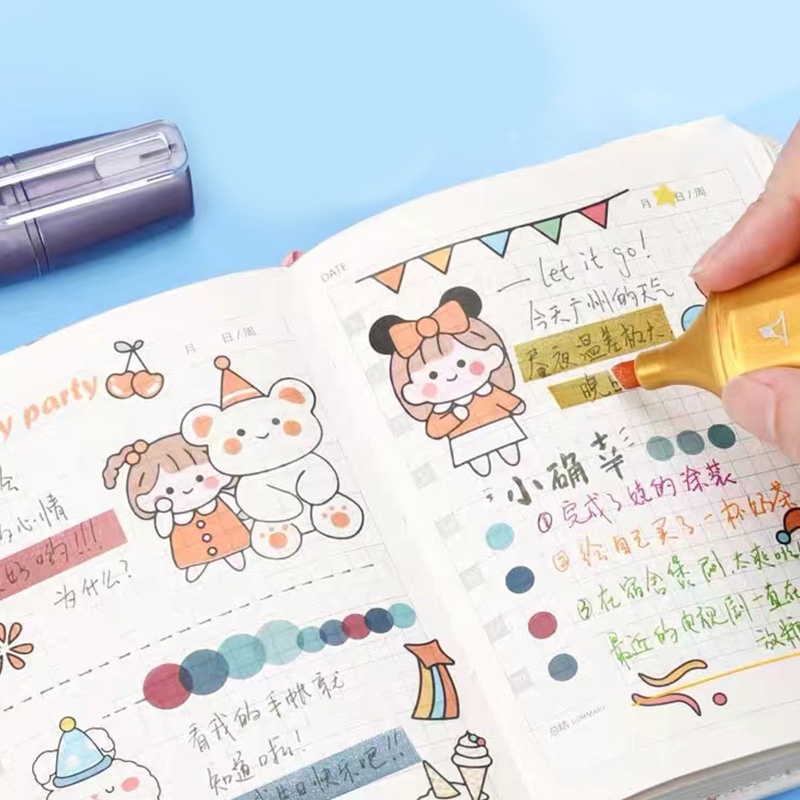 月 日/周
y party
心情
为什么?
看我的手帐就
知道啦!
生日快乐吧!!
DATE
月 日/周
— let it go!
今天广州的天气
昼夜温差较大
晚
小确幸
① 完成了 的涂装
② 给自己买了一杯奶茶
③ 在宿舍煲剧 太爽啦
最近的电视剧一直在
总结 SUMMARY